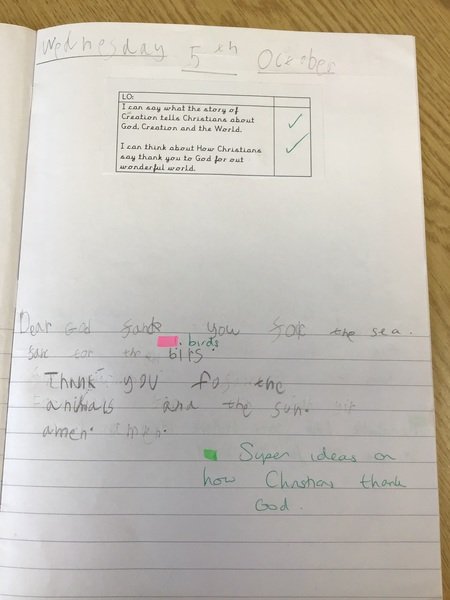 Wednesday 5th October
LO:
I can say what the story of
Creation tells Christians about
God, Creation and the World.
I can think about How Christians
say thank you to God for out
wonderful world.
Dear God you for the sea.
birds
for the birs.
Thank you for the
animals and the sun.
amen.
Super ideas on
how Christians thank
God.